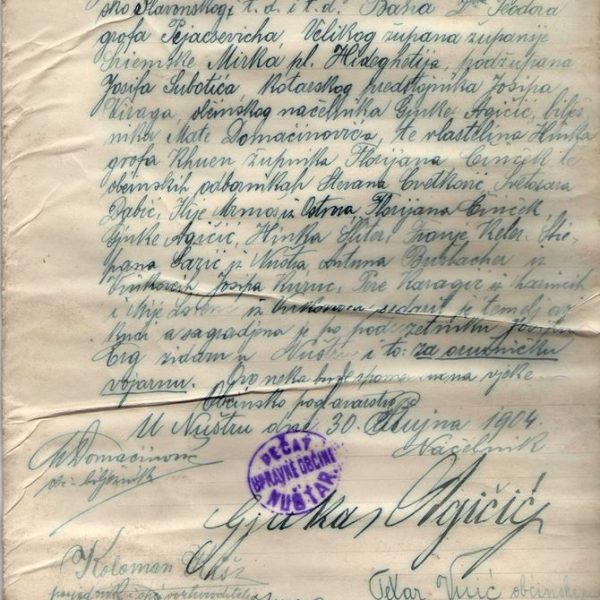 sko Slavonskog i t. d. i t. d. Bana Teodora
grofa Pejacsevicha Velikog župana županije
Sriemske Mirka pl. Hideghetija, podžupana
Josifa Subotića, kotarskog predstojnika Josipa
Viraga, občinskog načelnika Gjuke Agičić, bilje
nika Mate Domaćinovića, te vlastelina Hinka
grofa Khuen župnika Florijana Cinček te
občinskih odbornikah Stevana Cvetković, Svetozara
Dabić, Ilije Mrmoš iz Ostrova Florijana Cinček,
Gjuke Agičić, Hinka Franje Keler, Stje
pana Lazić iz Nuštra, Antuna Burlacher iz
Josipa Kuruc, Pere Karagić iz
i Ilije iz je temelj ovoj
kući a sagradjena je po poduzetniku Josipu
Erg zidaru u Nuštru i to: za oružničku
vojarnu. Ovo neka bude spomen na vjeke
Občinsko poglavarstvo
U Nuštru dne 30. Rujna 1904.
Načelnik
M Domaćinović
ob. bilježnik
PEČAT
UPRAVNE OBĆINE
NUŠTAR.
Gjuka Agičić
Koloman
občinski